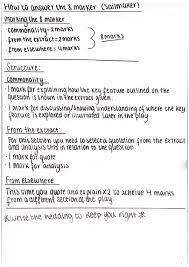 How to answer the 8 marker (Sailmaker)
Marking the 8 marker
commonality = 2 marks
from the extract = 2 marks
from elsewhere = 4 marks
8 marks
Structure:
Commonality:
1 mark for explaining how the key feature outlined on the
question is shown in the extract given.
1 mark for discussing/knowing understanding of where the key
feature is explored or illustrated later in the play.
From the extract:
For this section you need to select a quotation from the extract
and analysis this in relation to the question.
1 mark for quote
1 mark for analysis
From elsewhere
This time you quote and explain x2 to achieve 4 marks
from a different section of the play.
*write the hedding to keep you right *